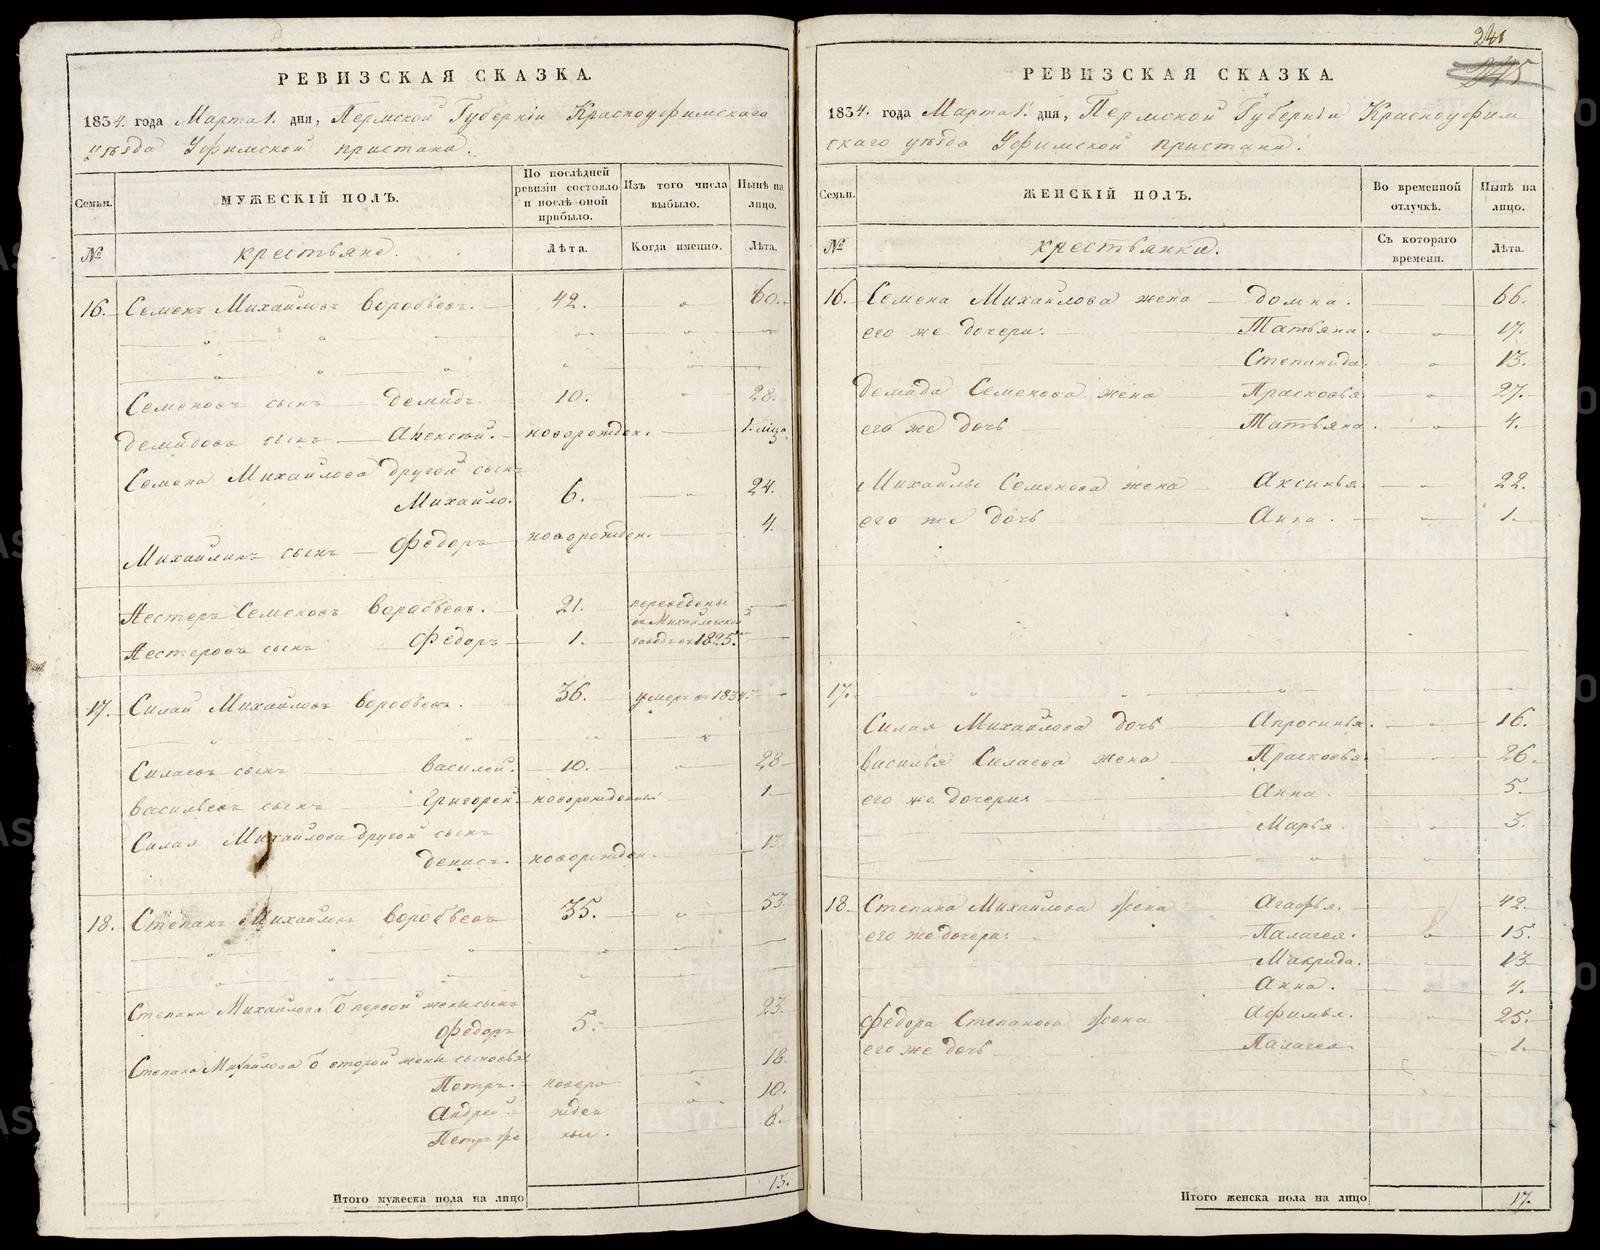 РЕВИЗСКАЯ СКАЗКА.
1834. года Марта 1. дня, Пермской Губерніи Красноуфимскаго
уѣзда Уфимской пристани.
Семьи.
МУЖЕСКІЙ ПОЛЪ.
По послѣдней ревизіи состояло и послѣ оной прибыло.
Изъ того числа выбыло.
Нынѣ на лицо.
№
крестьяне.
Лѣта.
Когда именно.
Лѣта.
16. Семенъ Михайловъ Воробьевъ. 42. 60.
Семеновъ сынъ Демидъ 10. 28.
Демидовъ сынъ Алексѣй. новорожден. 1.
Семена Михайлова другой сынъ
Михайло. 6. 24.
Михайлинъ сынъ Федоръ новорожден. 4.
Нестеръ Семеновъ Воробьевъ. 21. переведены
въ Михайловской
Нестеровъ сынъ Федоръ 1. заводъ въ 1825.
17. Силай Михайловъ Воробьевъ. 36. умеръ въ 1834.
Силаевъ сынъ Василей. 10. 28
Васильевъ сынъ Григорей. новорожденный 1
Силая Михайлова другой сынъ
Денисъ. новорожден. 13.
18. Степанъ Михайловъ Воробьевъ 35. 53
Степана Михайлова о первой жены сынъ 23.
Федоръ 5.
Степана Михайлова о второй жены сыновья 18.
Петръ. новоро 10.
Андрей жден 8.
Петръ же ные.
Итого мужеска пола на лицо 13.
241
245
РЕВИЗСКАЯ СКАЗКА.
1834. года Марта 1. дня, Пермской Губерніи Красноуфим
скаго уѣзда Уфимской пристани.
Семьи.
ЖЕНСКІЙ ПОЛЪ.
Во временной отлучкѣ.
Нынѣ на лицо.
№
крестьянки.
Съ котораго времени.
Лѣта.
16. Семена Михайлова жена Домна. 66.
его же дочери: Татьяна. 17.
Степанида. 13.
Демида Семенова жена Прасковья 27.
его же дочь Татьяна. 4.
Михайлы Семенова жена Аксинья 22.
его же дочь Анна. 1.
17.
Силая Михайлова дочь Апросинья. 16.
Василья Силаева жена Прасковья 26.
его же дочери Анна. 5.
Марья. 3.
18. Степана Михайлова жена Агафья. 42.
его же дочери: Палагея. 15.
Макрида. 13
Анна. 4.
Федора Степанова жена Афимья. 25.
его же дочь Палагея. 1.
Итого женска пола на лицо 17.